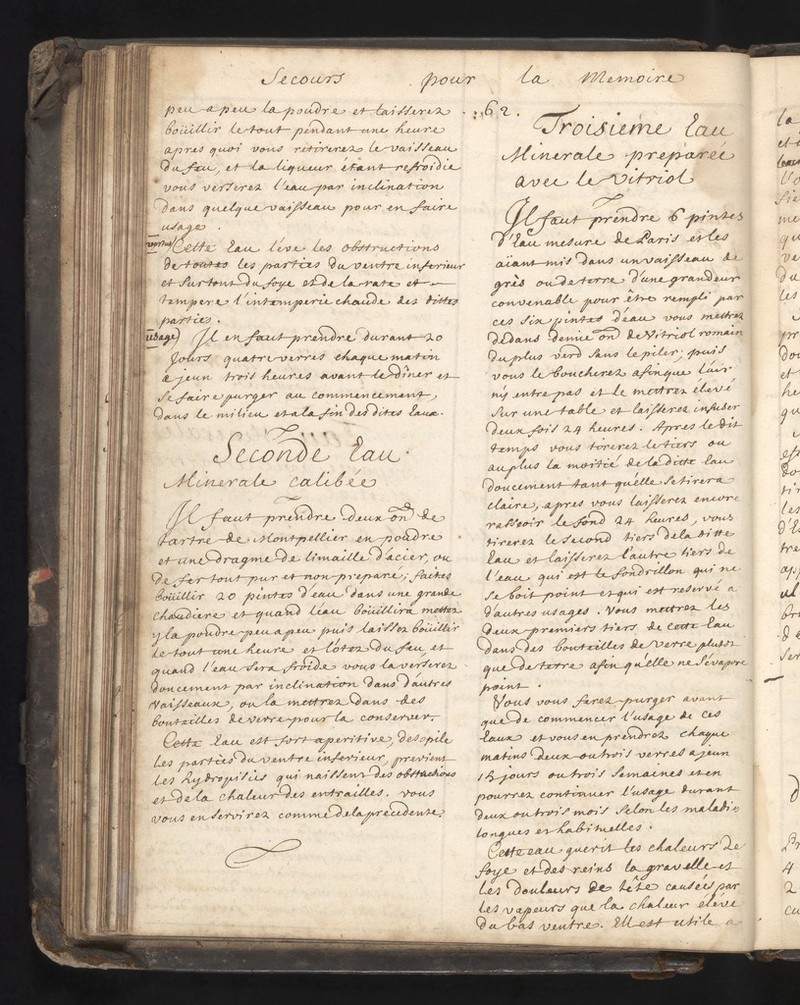 Secours pour la Memoire
peu a peu la poudre et laisserez
boüillir le tout pendant une heure
apres quoi vous retirerez le vaisseau
du feu, et la liqueur étant refroidie
vous verserez l'eau par inclination
dans quelque vaisseau pour en faire
usage.
vertus Cette Eau léve les obstructions
de toutes les parties du ventre inferieur
et surtout du foye et de la rate et
tempere l'intemperie chaude des dittes
parties.
usage) Il en faut prendre durant 20
Jours quatre verres chaque matin
a jeun trois heures avant le dîner et
se faire purger au commencement,
dans le milieu et a la fin desdites Eaux.
Seconde Eau
Minerale calibée
Il faut prendre deux on de
tartre de Montpellier en poudre
et une dragme de limaille d'acier, ou
de fer tout pur et non preparé; faites
boüillir 20 pintes d'eau dans une grande
chaudiere et quand l'eau boüillira mettez
y la poudre peu a peu puis laissez boüillir
le tout une heure et l'ôtez du feu, et
quand l'eau sera froide vous la verserez
doucement par inclination dans d'autres
vaisseaux, ou la mettrez dans des
bouteilles de verre pour la conserver.
Cette Eau est fort aperitive, desopile
les parties du ventre inferieur, previent
les hydropisies qui naissent des obstructions
et de la chaleur des entrailles. vous
vous en servirez comme de la precedente.
62.
Troisieme Eau
Minerale preparée
avec le Vitriol
Il faut prendre 6 pintes
d'Eau mesure de Paris et les
aïant mis dans un vaisseau de
grès ou de terre d'une grandeur
convenable pour être rempli par
ces six pintes d'eau vous mettrez
dedans demie on de Vitriol romain
du plus verd sans le piler; puis
vous le boucherez afin que l'air
n'y entre pas et le mettrez élevé
sur une table et laisserez infuser
deux fois 24 heures. Apres ledit
temps vous tirerez le tiers ou
au plus la moitié de la ditte Eau
doucement tant qu'elle se tirera
claire, apres vous laisserez encore
rassoir le fond 24 heures, vous
tirerez le second tiers de la ditte
Eau et laisserez l'autre tiers de
l'eau qui est le fondrillon qui ne
se boit point et qui est reservé a
d'autres usages. Vous mettrez les
deux premiers tiers de cette Eau
dans des bouteilles de verre plutot
que de terre afin qu'elle ne s'évapore
point.
Vous vous ferez purger avant
que de commencer l'usage de ces
Eaux et vous en prendrez chaque
matins deux ou trois verres a jeun
15 jours ou trois semaines et en
pourrez continuer l'usage durant
deux ou trois mois selon les maladies
longues et habituelles.
Cette eau guerit les chaleurs de
foye et des reins la gravelle et
les douleurs de tête causées par
les vapeurs que la chaleur eléve
du bas ventre. Ell est utile a